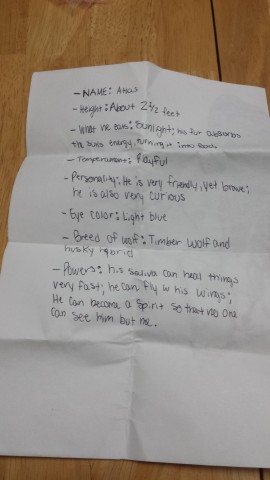 - NAME: Atlas
- Height: About 2 1/2 feet
- What he eats: Sunlight; his fur absorbs
the suns energy, turning it into food
- Temperament: Playful
- Personality: He is very friendly, yet brave;
he is also very curious
- Eye color: Light blue
- Breed of wolf: Timber wolf and
husky hybrid
- Powers: his saliva can heal things
very fast; he can fly w his wings;
He can become a spirit so that no one
can see him but me.